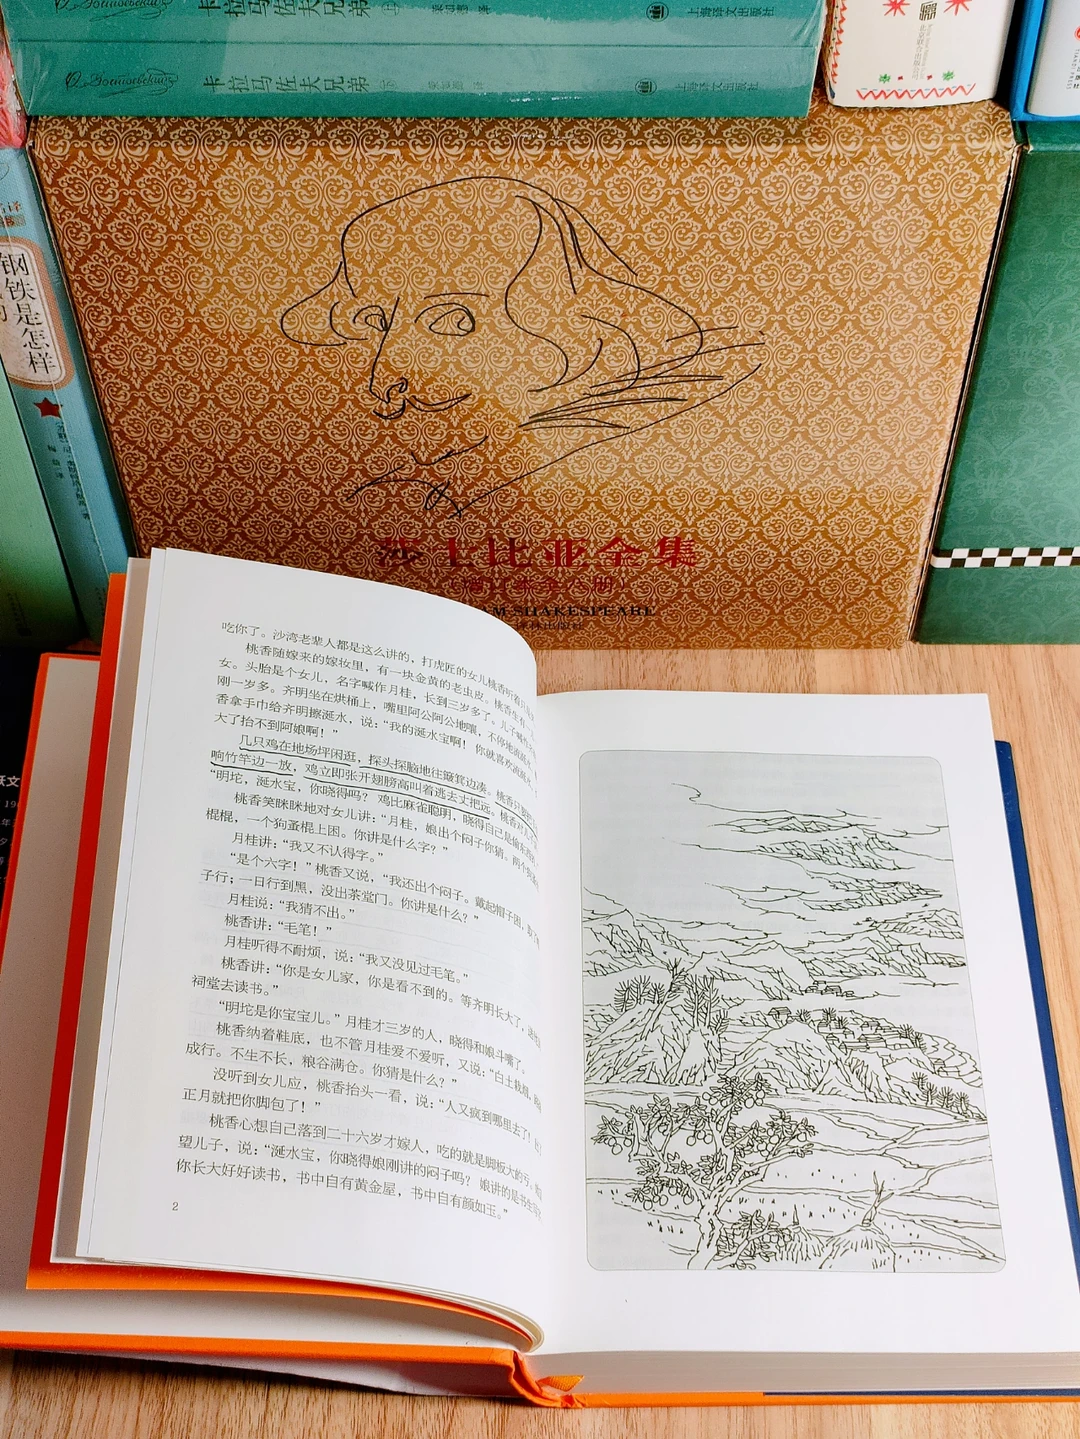 卡拉马佐夫兄弟 上
上海译文出版社
Достоевский
卡拉马佐夫兄弟 下
上海译文出版社
钢铁是怎样
莎士比亚全集
SHAKESPEARE
译林出版社
吃你了。沙湾老辈人都是这么讲的，打虎匠的女儿桃香听着
桃香随嫁来的嫁妆里，有一块金黄的老虎皮。桃香生有
女。头胎是个女儿，名字喊作月桂，长到三岁多了。儿子喊作
刚一岁多。齐明坐在烘桶上，嘴里阿公阿公地嚷，不停地流涎水
香拿手巾给齐明擦涎水，说：“我的涎水宝啊！你就喜欢流涎水
大了抬不到阿娘啊！”
几只鸡在地场坪闲逛，探头探脑地往簸箕边凑。桃香只要把
响竹竿边一放，鸡立即张开翅膀高叫着逃去丈把远。桃香对儿子
“明坨，涎水宝，你晓得吗？鸡比麻雀聪明，晓得自己是偷东西
桃香笑眯眯地对女儿讲：“月桂，娘出个闷子你猜。两个
棍棍，一个狗蚤棍上困。你讲是什么字？”
月桂讲：“我又不认得字。”
“是个六字！”桃香又说，“我还出个闷子。戴起帽子困，
子行；一日行到黑，没出茶堂门。你讲是什么？”
月桂说：“我猜不出。”
桃香讲：“毛笔！”
月桂听得不耐烦，说：“我又没见过毛笔。”
桃香讲：“你是女儿家，你是看不到的。等齐明长大了，
祠堂去读书。”
“明坨是你宝宝儿。”月桂才三岁的人，晓得和娘斗嘴了。
桃香纳着鞋底，也不管月桂爱不爱听，又说：“白土栽烟，
成行。不生不长，粮谷满仓。你猜是什么？”
没听到女儿应，桃香抬头一看，说：“人又疯到哪里去了！
正月就把你脚包了！”
桃香心想自己落到二十六岁才嫁人，吃的就是脚板大的亏。
望儿子，说：“涎水宝，你晓得娘刚讲的闷子吗？娘讲的是书生
你长大好好读书，书中自有黄金屋，书中自有颜如玉。”
2